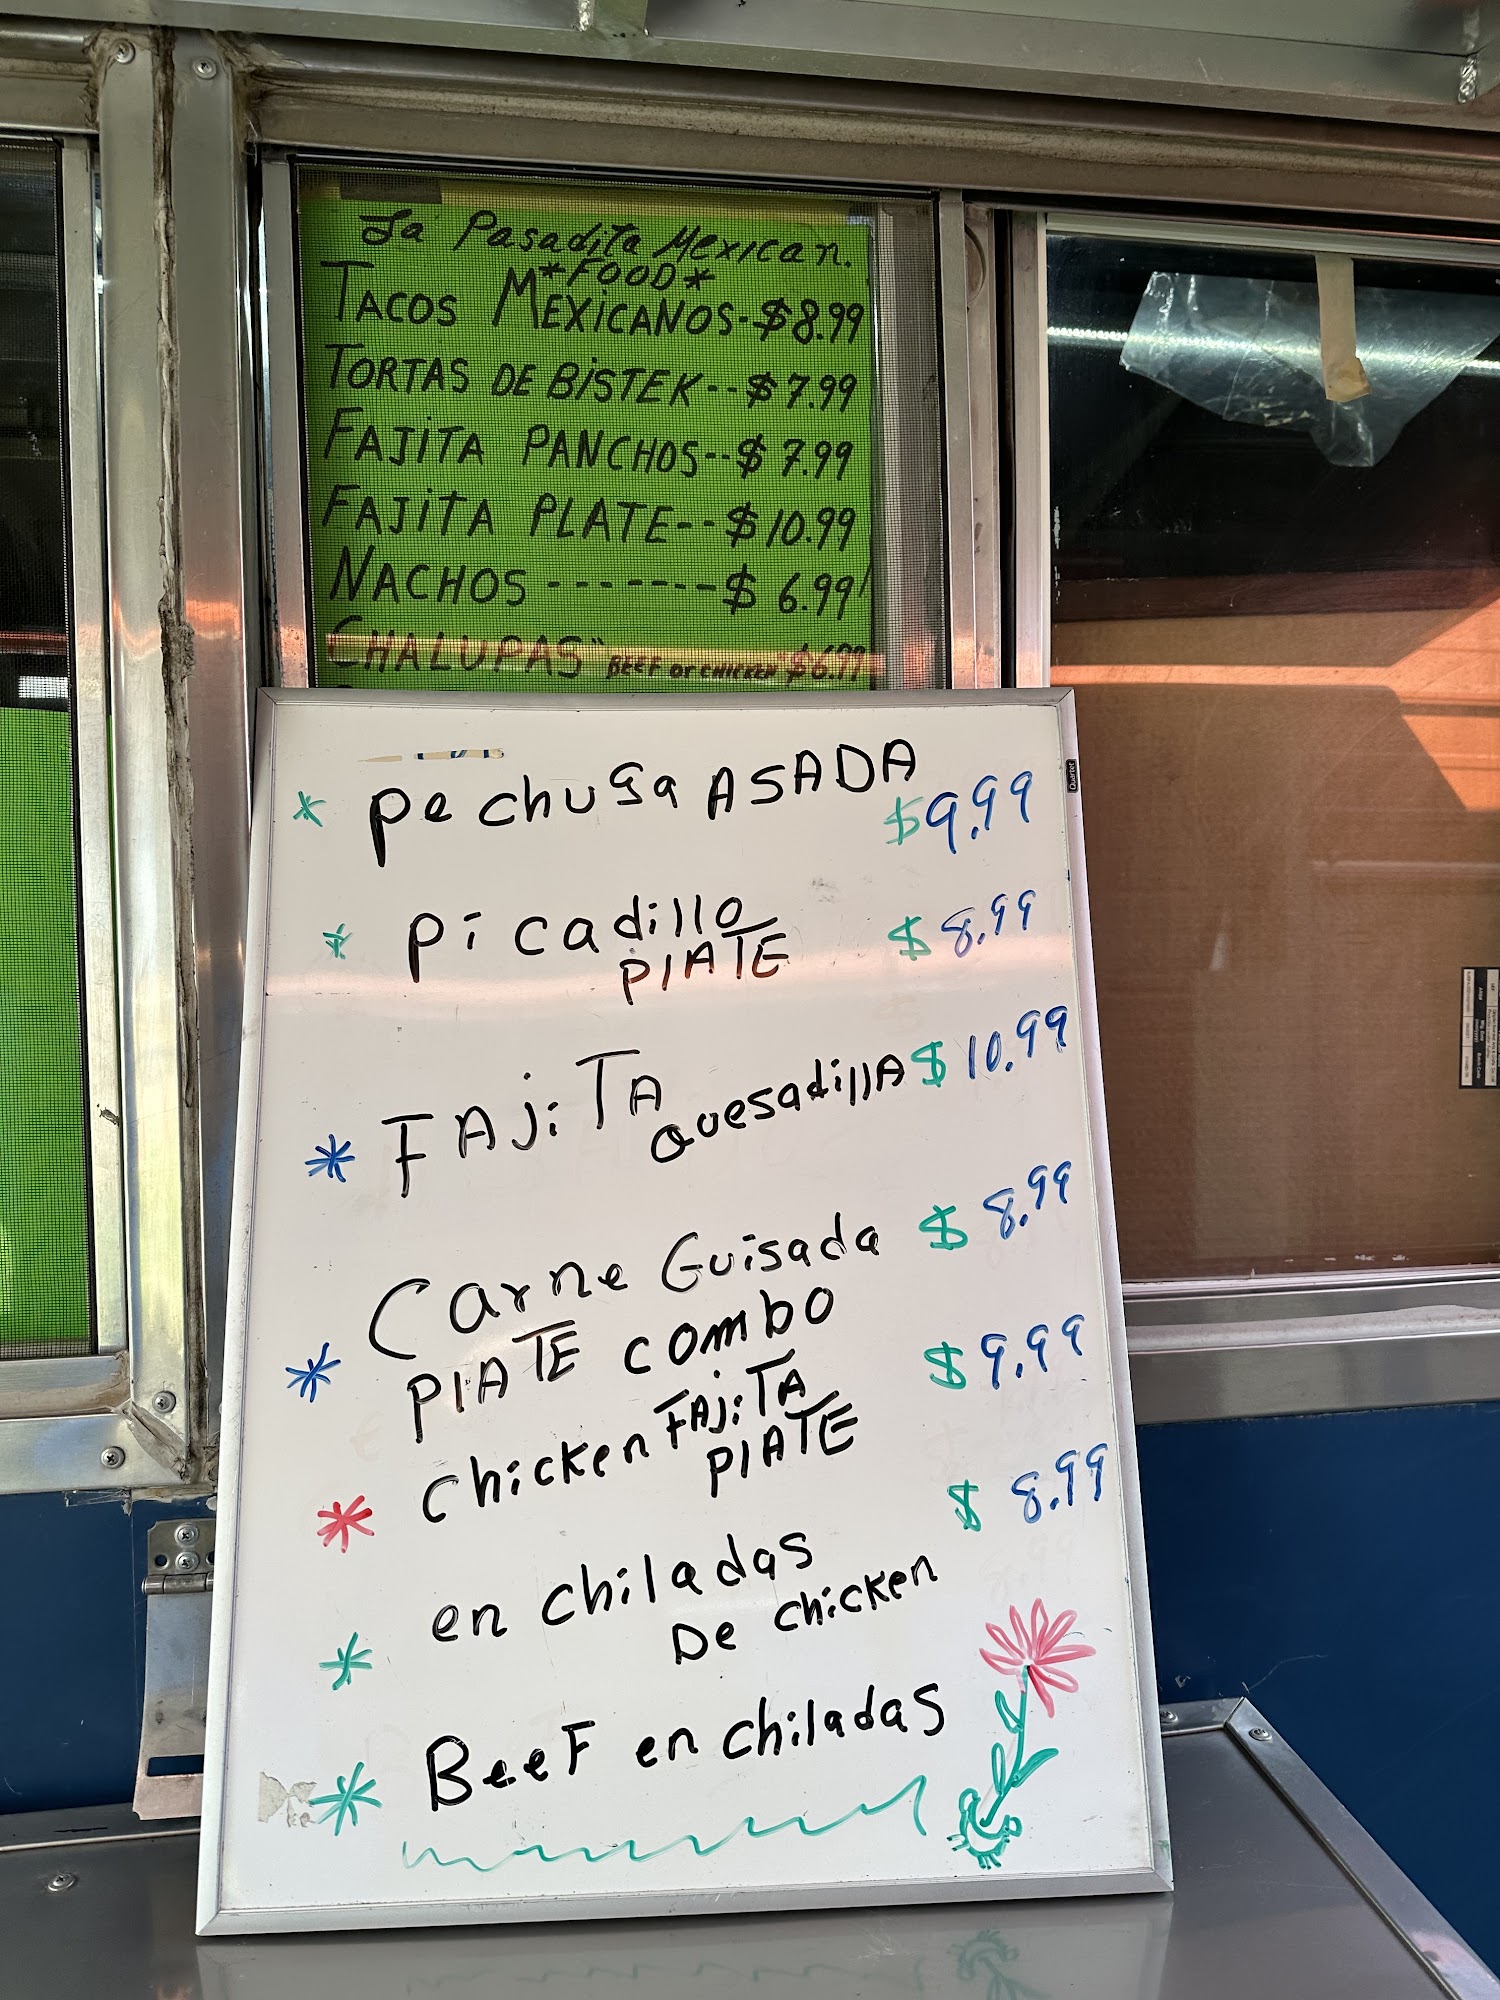 La Pasadita Mexican.
*FOOD*
TACOS MEXICANOS-$8.99
TORTAS DE BISTEK--$7.99
FAJITA PANCHOS--$7.99
FAJITA PLATE--$10.99
NACHOS-------$6.99
CHALUPAS "BEEF or CHICKEN" $6.99
Quartet
* pechuga ASADA $9.99
* picadillo PlATE $8.99
* FAjiTA quesadillA $10.99
* Carne Guisada $8.99
PlATE combo
* chicken FAjiTA PlATE $9.99
* enchiladas De chicken $8.99
* BeeF enchiladas